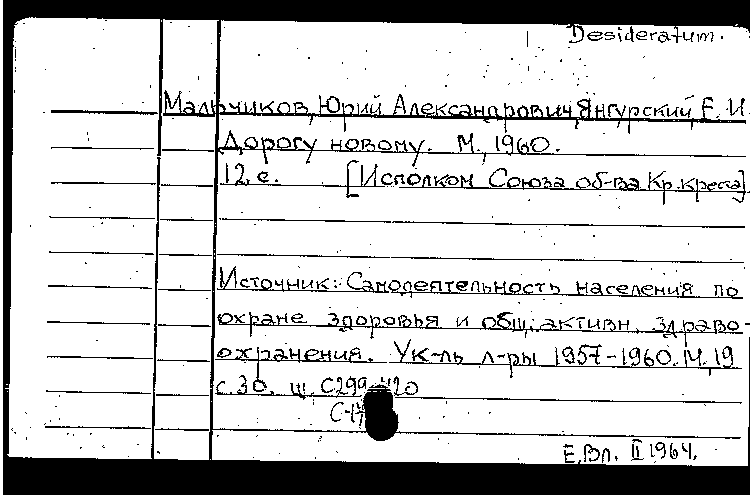 Desideratum.
Мальчиков, Юрий Александрович, Янгурский, Е. И.
Дорогу новому. М., 1960.
12 с. [Исполком Союза об-ва Кр. креста]
Источник: Самодеятельность населения по
охране здоровья и общ. активн. здраво-
охранения. Ук-ль л-ры 1957-1960. М, 19
с. 30. ш. С299
Е.Вл. II 1964.